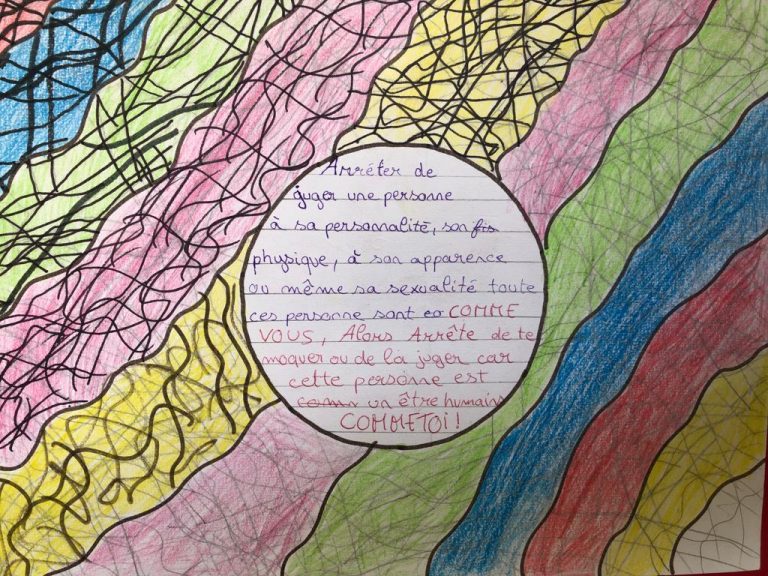 Arréter de
juger une personne
à sa personnalité, son fis
physique, à son apparence
ou même sa sexualité toute
ces personne sont co COMME
VOUS, Alors Arrête de te
moquer ou de la juger car
cette personne est
comm un être humains
COMME TOI !